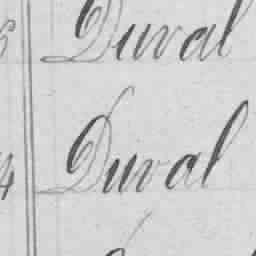 Duval
4 Duval